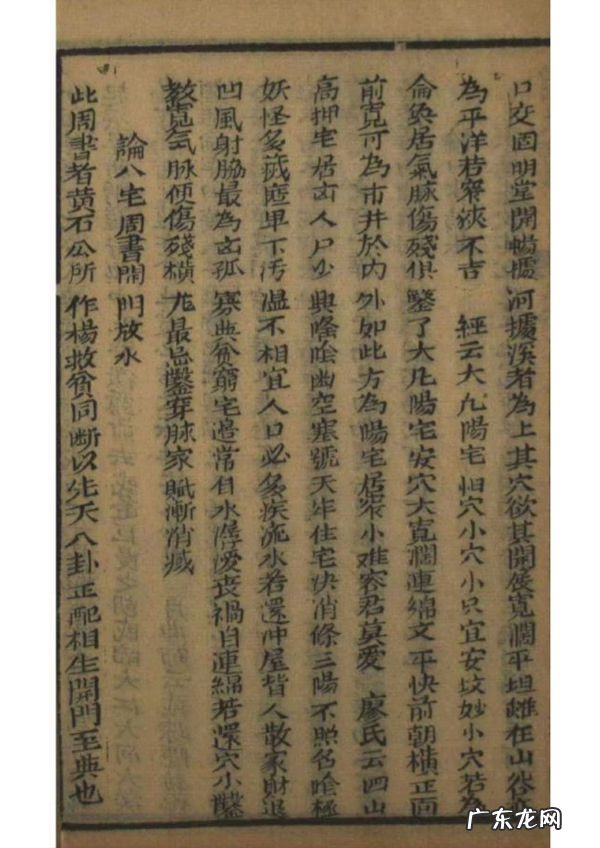 口交固明堂開暢據河擴溪者為上其穴欲其開
為平洋若窄狹不吉 經云大凡陽宅怕穴小穴小只宜安坟妙小穴若為
侖奐居氣脉傷殘俱鑿了大凡陽宅安穴大寬濶連綿文平快前朝橫正向
前寬可為市井於內外如此方為陽宅居衆小难容君莫愛 廖氏云四山
高押宅居凶人口少興隆陰幽空塞號天牢住宅決消條三陽不照名陰極
妖怪多藏匿卑下汚溫不相宜人口必多疾流水若還冲屋皆人散家財退
凹風射脇最為凶孤寡典貧窮宅邊常有水潺湲喪禍自連綿若還穴小鑿
教寬氣脉便傷殘橫龙最忌鑿穿脉家賦漸消滅
論八宅周書開門放水
此周書者黄石公所作楊救貧同斷以先天八卦正配相生開門至典也
广东龙网